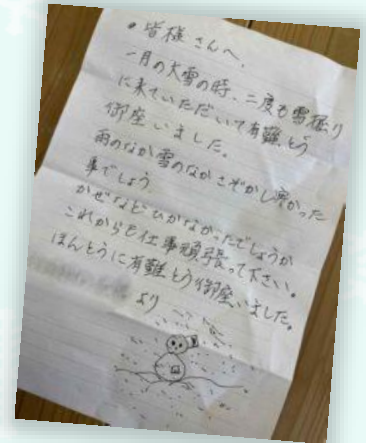 ・皆様さんへ、
一月の大雪の時、二度も雪掘り
に来ていただいて有難とう
御座いました。
雨のなか雪のなかさぞかし寒かった
事でしょう
かぜなどひかなかったでしょうか
これからも仕事頑張って下さい。
ほんとうに有難とう御座いました。
より